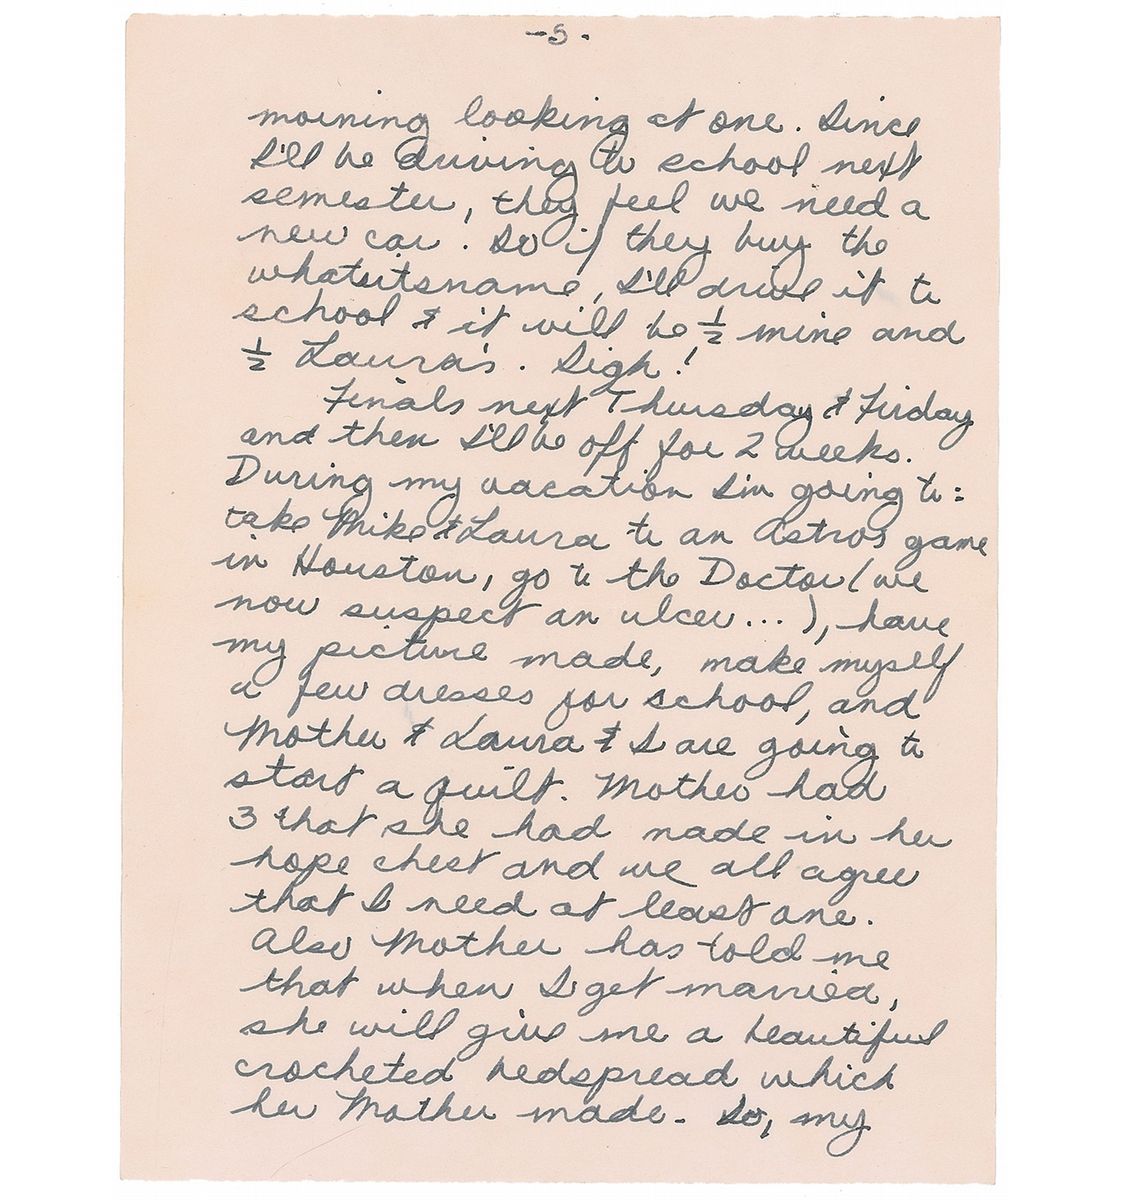 -5-
morning looking at one. Since
I'll be driving to school next
semester, they feel we need a
new car. So if they buy the
whatsitsname, I'll drive it to
school & it will be ½ mine and
½ Laura's. Sigh!
Finals next Thursday & Firday
and then I'll be off for 2 weeks.
During my vacation I'm going to:
take Mike & Laura to an Astros game
in Houston, go to the Doctor (we
now suspect an ulcer...), have
my picture made, make myself
a few dresses for school, and
Mother & Laura & I are going to
start a quilt. Mother had
3 that she had made in her
hope chest and we all agree
that I need at least one.
Also Mother has told me
that when I get married,
she will give me a beautiful
crocheted bedspread which
her Mother made. So, my